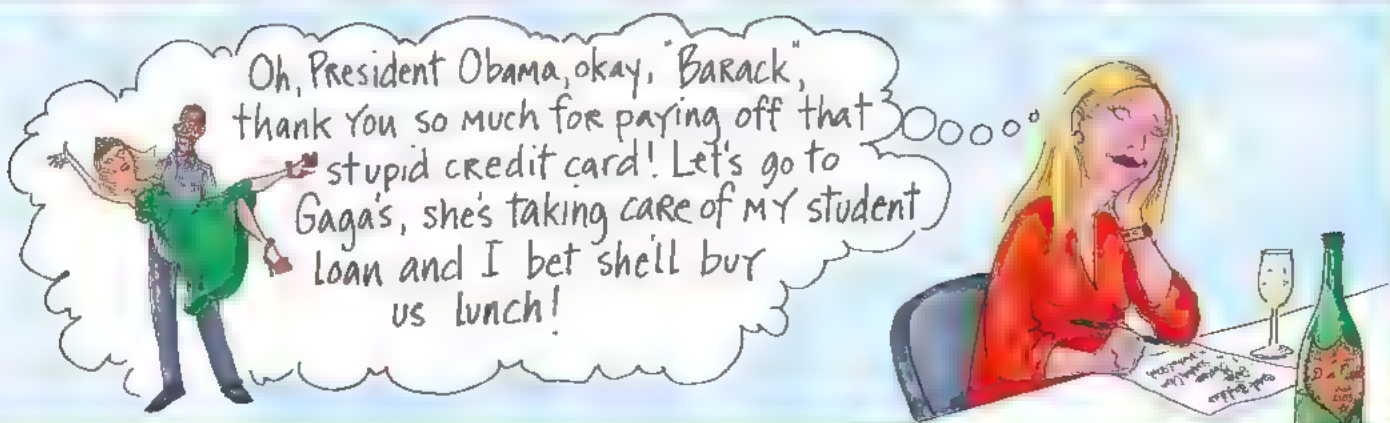 Oh, President Obama, okay, "Barack",
thank you so much for paying off that
stupid credit card! Let's go to
Gaga's, she's taking care of MY student
loan and I bet she'll buy
us lunch!